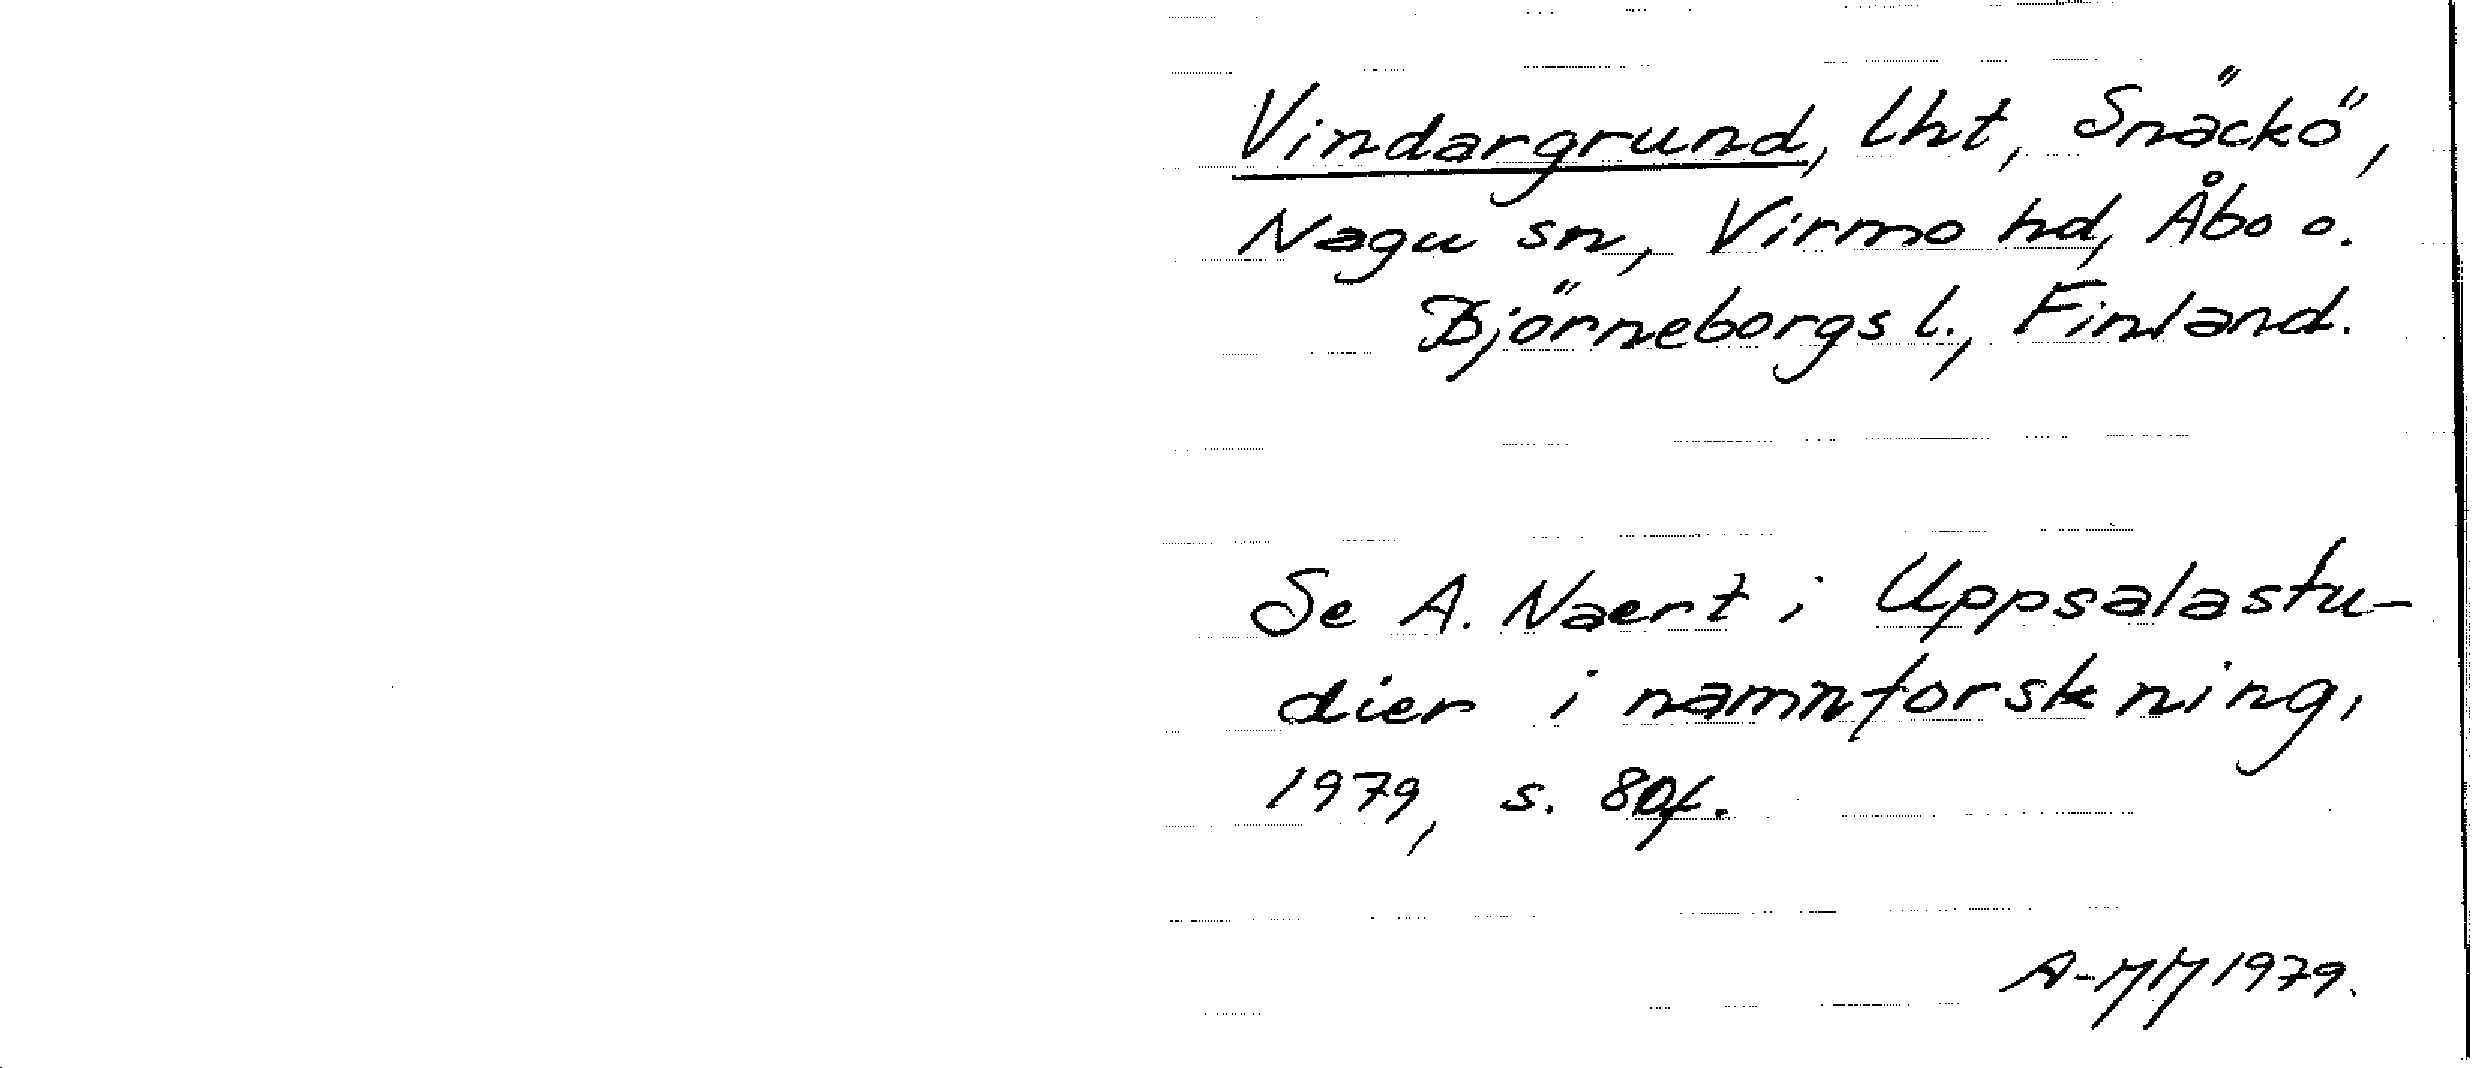 Vindargrund, lht, Snäckö,
Nagu sn, Virmo hd, Åbo o.
Björneborgs l., Finland.
Se A. Naert i Uppsalastu-
dier i namnforskning,
1979, s. 80f.
1979.